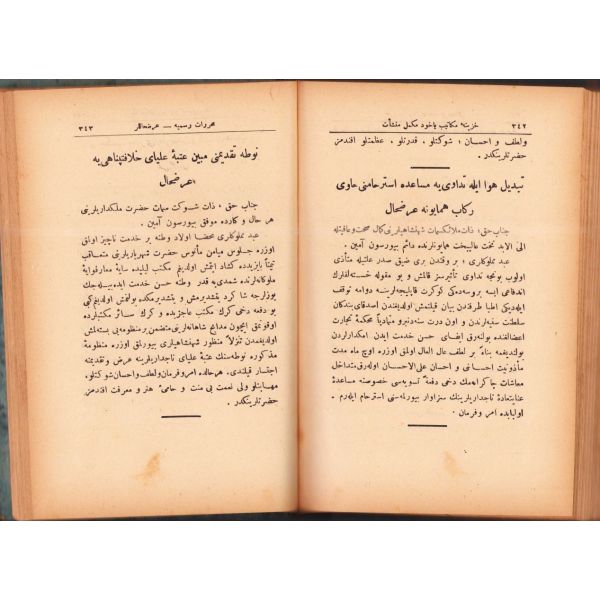 ٣٤٢ خزينهٔ مكاتيب ياخود مكمل منشآت
ولطف و احسان ؛ شوكتلو ، قدرتلو ، عظمتلو افندمز
حضرتلرينكدر .
تبديل هوا ايله تداوى يه مساعده استرحامنى حاوى
ركاب همايونه عرضحال
جناب حق ، ذات ملائكسمات شهنشاهيلرينى كمال صحت وعافيتله
الى الابد تخت عاليبخت همايونلرنده دائم بيورسون آمين .
عبد مملوكلرى ؛ بر وقتدن برى ضيق صدر علتيله متأذى
اولوب بونجه تداوى تأثيرسز قالمش و بو مقوله خسته لفلرك
اندفاعى ايسه بروسه ده كى كوكرت قاپليجه لرينه دوامه توقف
ايديكى اطبا طرفندن بيان قيلنمش اولديغندن اصدقاى بندكان
سلطنت سنيه لرندن و اون درت سنه دنبرو متماديا محكمهٔ تجارت
اعضالغنده بولنه رق ايفاى حسن خدمت ايدن امكدارلردن
بولنديغمه بناء بر لطف عال العال اولمق اوزره اوچ ماه مدت
مأذونيت احسانى و احسان على الاحسان اوله رق متداخل
معاشات چاكرانه مك دخى دفعةً تسويه سى خصوصنه مساعدهٔ
عنايتعادهٔ تاجداريلرينك سزاوار بيورلمه سنى استرحام ايلرم .
اولبابده امر وفرمان .
محررات رسميه — عرضحاللر ٣٤٣
نوطه تقديمنى مبين عتبهٔ علياى خلافتپناهى يه
عرضحال
جناب حق ، ذات شوكت سمات حضرت ملكداريلرينى
هر حال و كارده موفق بيورسون آمين .
عبد مملوكلرى محضا اولاد وطنه بر خدمت ناچيز اولمق
اوزره جلوس ميامن مأنوس حضرت شهرياريلرينى متعاقب
تيمناً بايزيدده كشاد ايتمش اولديغم مكتب ليليده سايهٔ معارفوايهٔ
ملوكانه لرنده شمدى يه قدر وطنه حسن خدمت ايده بيله جك
يوزلرجه شاكرد يتشديرمش و يتشديرمكده بولنمش اولديغم كبى
بو دفعه دخى كرك مكتب عاجزيده و كرك سائر مكتبلرده
اوقونمق ايچون مدايح شاهانه لرينى متضمن بر منظومه يى بسته لمش
اولديغمدن تمولاً منظور شهنشاهيلرى بيورلمق اوزره منظومهٔ
مذكوره نوطه سنك عتبهٔ علياى تاجداريلرينه عرض وتقديمنه
اجتسار قيلندى . هر حالده امر وفرمان ولطف واحسان شوكتلو ،
مهابتلو ولى نعمت بى منت و حامىٔ هنر و معرفت افندمز
حضرتلرينكدر .